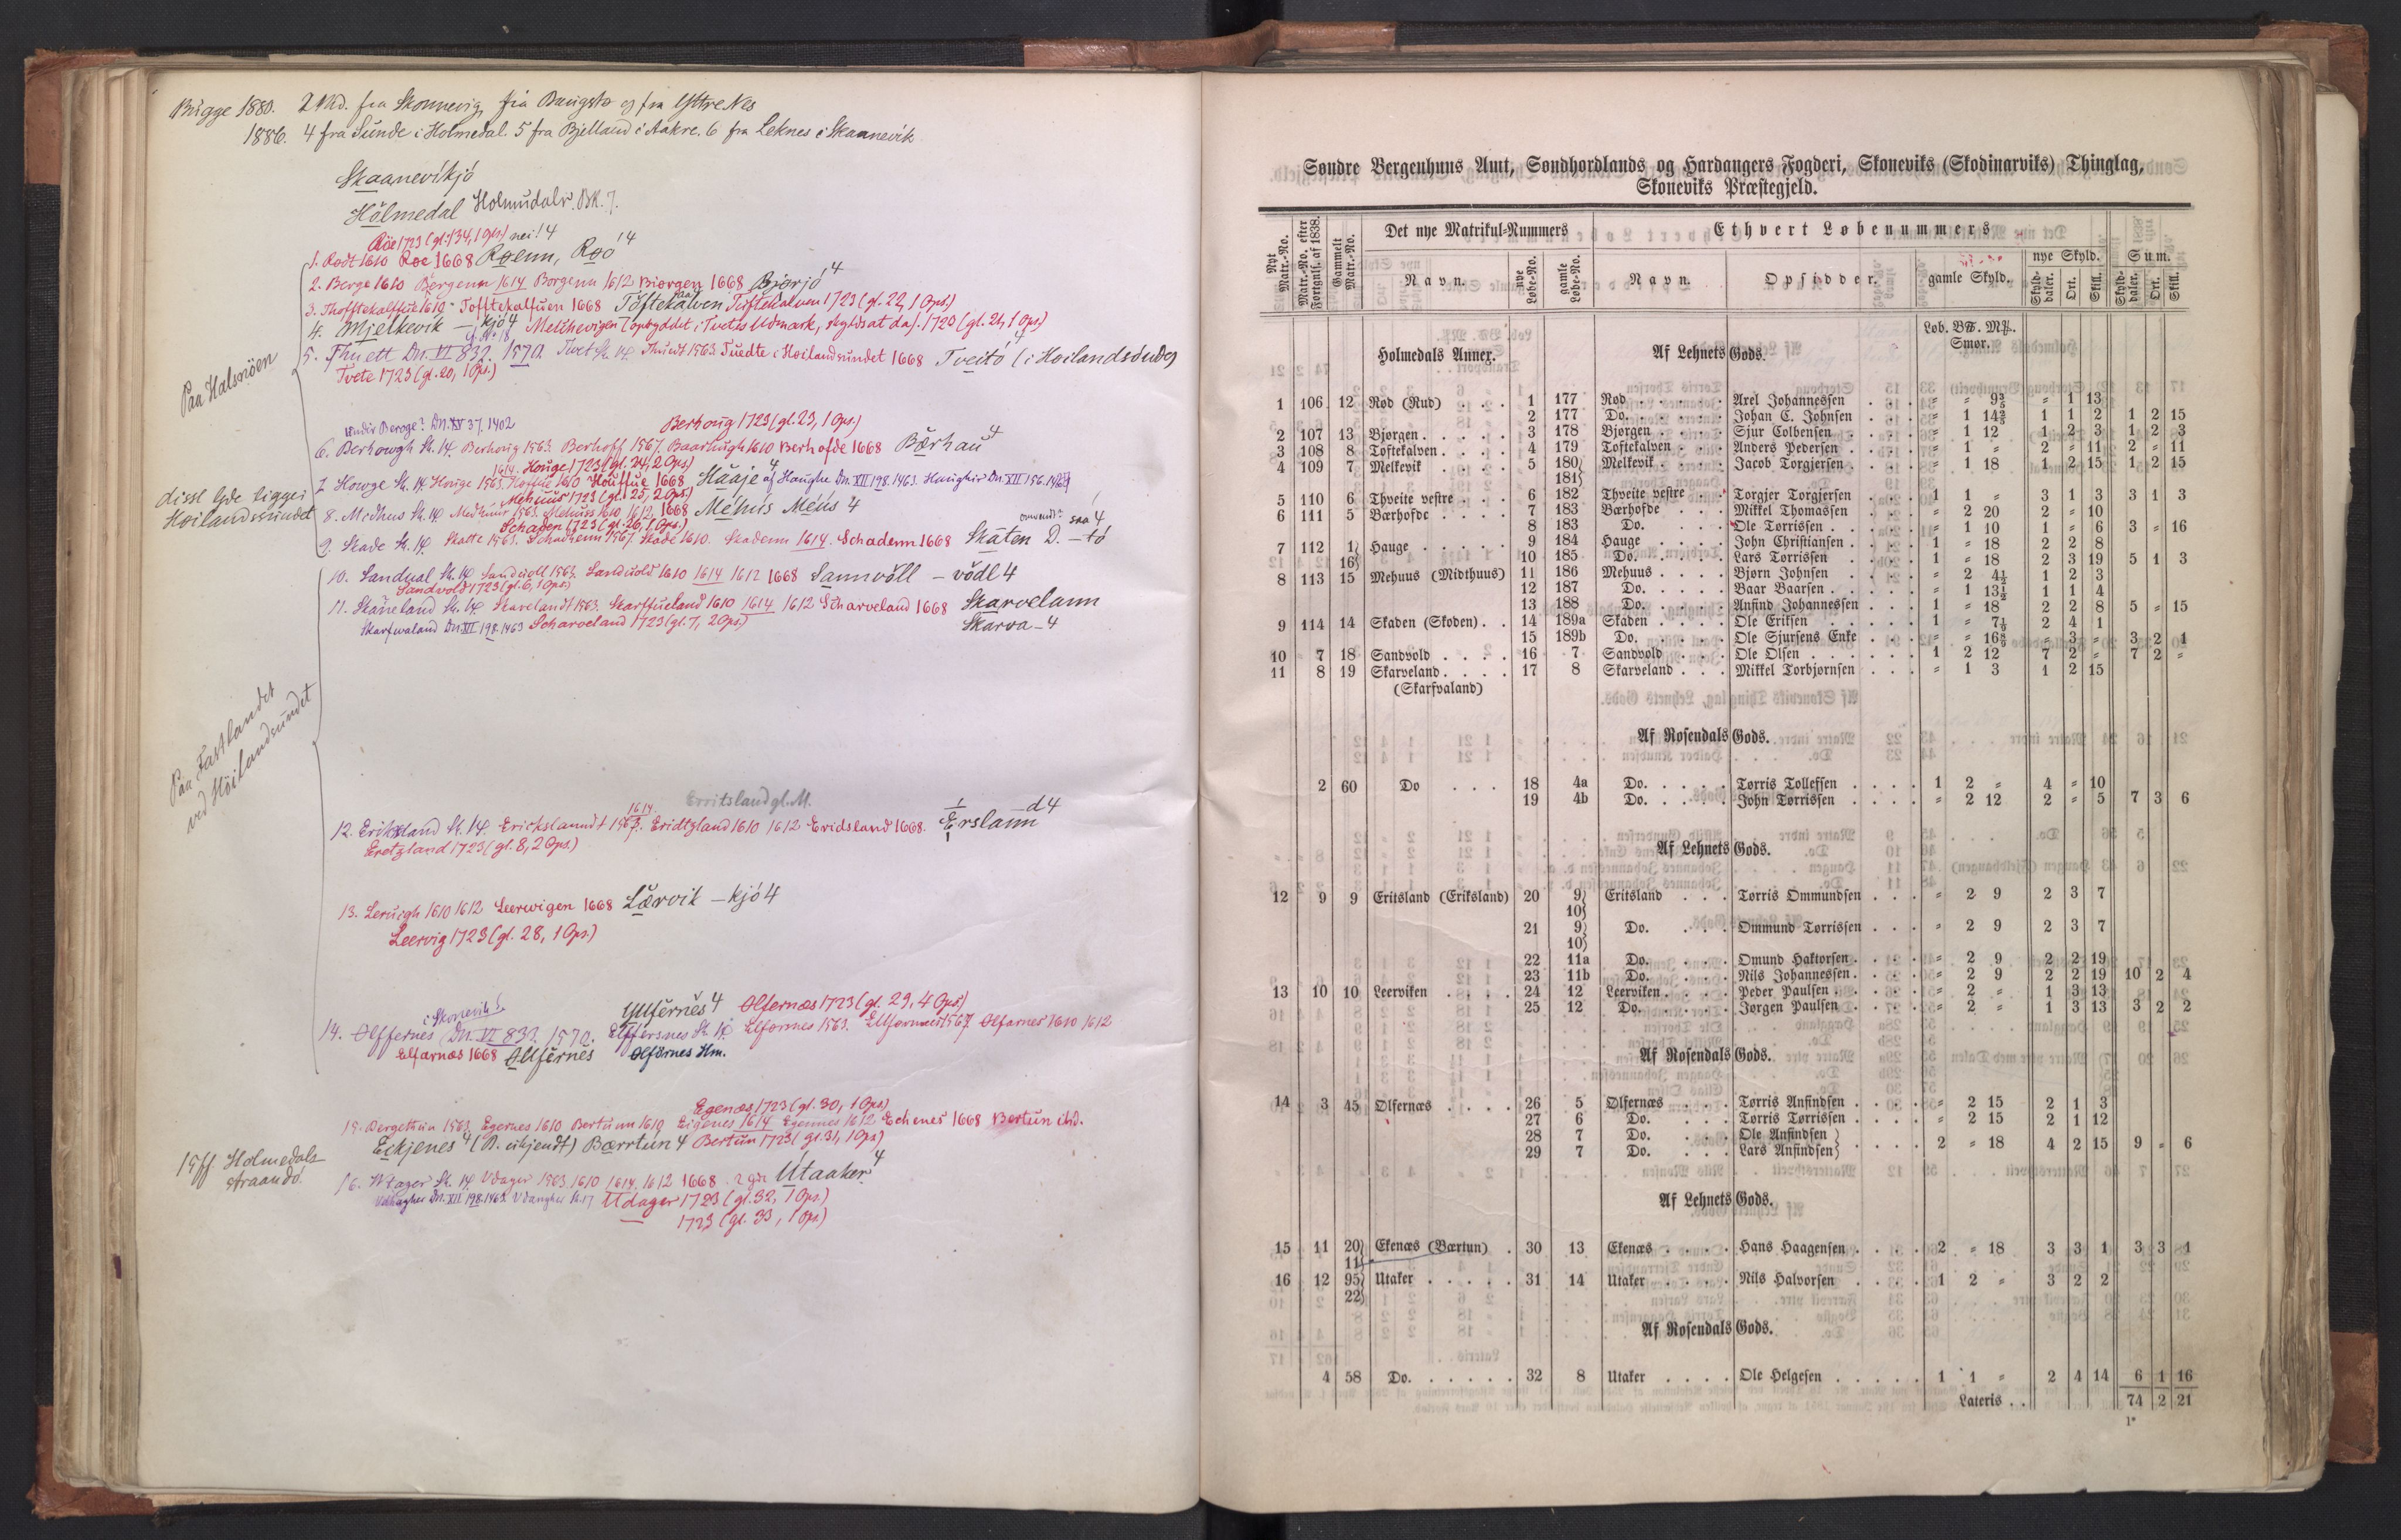 Bugge 1880. 2 Md. fra Skonnevig, fra Baugstø og fra Ytre Nes
1886. 4 fra Sunde i Holmedal. 5 fra Bjelland i Aakre. 6 fra Leknes i Skaanevik
Skaanevikjó
Hólmedal Holmudalr. BK. 7.
Røe 1723 (gl. 134, 1 Ops.) nei! 4
1. Rodt 1610 Roe 1668 Røenn, Røo 4
2. Berge 1610 Børgenn 1614 Borgenn 1612 Biorgen 1668 Bjørjó 4
3. Thofftekalffue 1610 Tofftekalfuen 1668 Toftekalven. Toftekalven 1723 (gl. 22, 1 Ops.)
4. Mjelkevik — kjó 4 Melchevigen (opryddet i Tvetes Udmark, skyldsat da). 1720 (gl. 21, 1 Ops.)
Paa Halsnöen
5. Thuett Dn. VI 832. 1570. Tuet St. 14 Thuedt 1563 Tuedte i Høilandsundet 1668 Tveitó (i Hoilandsóundó)
Tvete 1723 (gl. 20, 1 Ops.)
vndir Beroge? Dn. XV 37. 1402
Berhoug 1723 (gl. 23, 1 Ops.)
6. Berhowgh St. 14. Berhoug 1563. Berhoff 1567. Baarhugh 1610 Berhofde 1668 Bærhau 4
1614. Houge 1723 (gl. 24, 2 Ops.)
7. Howge St. 14 Houge 1563. Hoffue 1610 Houffue 1668 Haaje 4 af Haughe Dn. XII 198. 1463. Haughir Dn. XII 156. 1427
disse Gde ligge i Høilandssundet
Mehuus 1723 (gl. 25, 2 Ops.)
8. Midhus St. 14 Medhuus 1563. Mehuss 1610 1612. 1668 Méhús Méus 4
Schaden 1723 (gl. 26, 1 Ops.)
9. Skade St. 14 Skatte 1563. Schadhenn 1567. Skade 1610. Skadenn 1614. Schadenn 1668 Skaten D. — tó
10. Sandual St. 14 Sanduoll 1563. Sanduold 1610 1614 1612 1668 Sannvóll — vódl 4
Sandvold 1723 (gl. 6, 1 Ops.)
11. Skaneland St. 14. Skarelandt 1563. Skarffueland 1610 1614 1612 Scharveland 1668 Skarvelann
Skarfwaland Dn. XII 198. 1463 Scharveland 1723 (gl. 7, 2 Ops.) Skarva - 4
Paa Fastlandet
ved Höilandsundet
Erritsland gl. M.
1614.
12. Eriksland St. 14. Erickslanndt 1563. Eridtzland 1610 1612 Eridsland 1668. Erslann —d 4
Eretzland 1723 (gl. 8, 2 Ops.)
13. Leruigh 1610 1612 Leerwigen 1668 Lærvik — kjó 4
Leervig 1723 (gl. 28, 1 Ops.)
i Skonevik!
Ulfernes 4 Olfernæs 1723 (gl. 29, 4 Ops.)
14. Olffernes Dn. VI 833. 1570. Elffersnes St. 14 Elfornes 1563. Ellfornnes 1567. Olfarnes 1610 1612
Elfarnæs 1668 Olfernes Olfarnes Hm.
Egenæs 1723 (gl. 30, 1 Ops.)
15. Bergettun 1563. Egernes 1610 Bertunn 1610 Eigenes 1614 Egennes 1612 Echenes 1668 Bertun ibd.
Eikjenes 4 (D. eikjendt) Bærrtun 4 Bertun 1723 (gl. 31, 1 Ops.)
15ff Holmedals-
straandó.
16. Wtager St. 14 Vdager 1563. 1610 1614. 1612 1668. 2 gr. Utaaker 4
Vdhagher Dn. XII 198. 1463. Vdangher St. 17 Udager 1723 (gl. 32, 1 Ops.)
1723 (gl. 33, 1 Ops.)
Søndre Bergenhuus Amt, Søndhordlands og Hardangers Fogderi, Skoneviks (Skodinarviks) Thinglag,
Skoneviks Præstegjeld.
Nyt Matr.-No. Matr.-No. efter Forgnisl. af 1838. Gammelt Matr.-No. Det nye Matrikul-Nummers Ethvert Løbenummers
Navn. nye Løbe-No. gamle Løbe-No. Navn. Opsidder. gamle Skyld. nye Skyld. Sum.
Skyld-daler. Ort. Skill. Skyld-daler. Ort. Skill.
Løb. B℔. M℔.
Smør.
Holmedals Annex. Af Lehnets Gods.
1 106 12 Rød (Rud) . . . 1 177 Rød . . . . . Axel Johannessen . . . " " 9 3/5 " 1 13
2 177 Do. . . . . Johan C. Johnsen . . . " 1 14 2/5 1 1 2 1 2 15
2 107 13 Bjørgen . . . . 3 178 Bjørgen . . . . Sjur Colbensen . . . " 1 12 1 2 3 1 2 3
3 108 8 Toftekalven . . . 4 179 Toftekalven . . . Anders Pedersen . . . " 1 " 2 " 11 2 " 11
4 109 7 Melkevik . . . . 5 180} Melkevik . . . . Jacob Torgjersen . . . " 1 18 1 2 15 1 2 15
181}
5 110 6 Thveite vestre . . 6 182 Thveite vestre . . Torgjer Torgjersen . . . 1 1 " 3 1 3 3 1 3
6 111 5 Bærhofde . . . . 7 183 Bærhofde . . . Mikkel Thomassen . . . " 2 20 2 " 10
8 183 Do. . . . Ole Tørrissen . . . . " 1 10 1 " 6 3 " 16
7 112 1} Hauge . . . . . 9 184 Hauge . . . . John Christiansen . . . 1 " 18 2 2 8
16} 10 185 Do. . . . Lars Tørrissen . . . 1 " 18 2 3 19 5 1 3
8 113 15 Mehuus (Midthuus) 11 186 Mehuus . . . . Bjørn Johnsen . . . " 2 4 1/2 1 2 3
12 187 Do. . . . . Baar Baarsen . . . . " 1 13 1/2 1 1 4
13 188 Do. . . . . Anfind Johannessen . . . 1 " 18 2 2 8 5 " 15
9 114 14 Skaden (Skoden) . . 14 189a Skaden . . . . Ole Eriksen . . . . 1 " 7 1/9 2 4 1
15 189b Do. . . . . Ole Sjursens Enke . . . " " 16 8/9 " 3 " 3 2 1
10 7 18 Sandvold . . . . 16 7 Sandvold . . . Ole Olsen . . . . . 1 2 12 7 2 " 7 2 "
11 8 19 Skarveland . . . . 17 8 Skarveland . . . Mikkel Torbjørnsen . . . " 1 3 1 2 15
(Skarfvaland)
Af Rosendals Gods.
2 60 Do . . . 18 4a Do. . . . . Tørris Tollefsen . . . . 1 2 " 4 " 10
19 4b Do. . . . . John Tørrissen . . . . " 2 12 2 " 5 7 3 6
Af Lehnets Gods.
12 9 9 Eritsland (Eriksland) 20 9} Eritsland . . . Tørris Ommundsen . . . " 2 9 2 3 7
10}
21 9} Do. . . . Ommund Tørrissen . . . " 2 9 2 3 7
10}
22 11a Do. . . . Omund Haktorsen . . . " 2 9 2 2 19
23 11b Do. . . . Nils Johannessen . . . " 2 9 2 2 19 10 2 4
13 10 10 Leerviken . . . . 24 12 Leerviken . . . . Peder Paulsen . . . . " 2 " 1 3 13
25 12 Do. . . . . Jørgen Paulsen . . . . " 2 " 1 3 13 3 2 2
Af Rosendals Gods.
14 3 45 Olfernæs . . . . 26 5 Olfernæs . . . Tørris Anfindsen . . . . " 2 15 2 1 3
27 6 Do. . . . Tørris Tørrissen . . . . " 2 15 2 1 12
28 7 Do. . . . Ole Anfindsen }
29 7 Do. . . . Lars Anfindsen} . . . 2 " 18 4 2 15 9 " 6
Af Lehnets Gods.
15 11 20} Ekenæs (Bærtun) . 30 13 Ekenæs . . . . Hans Haagensen . . . . 2 " 18 3 3 1 3 3 1
11}
16 12 95} Utaker . . . . . 31 14 Utaker . . . . Nils Halvorsen . . . . 1 2 " 3 2 2
22}
Af Rosendals Gods.
4 58 Do. . . . . . 32 8 Utaker . . . . Ole Helgesen . . . . . 1 1 " 2 4 14 6 1 16
Lateris . . 74 2 21
1*